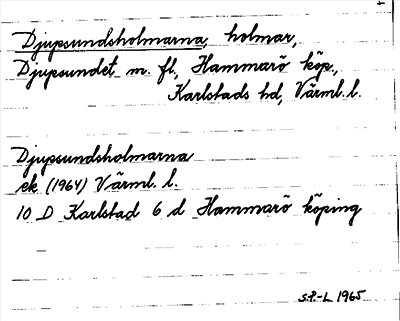 Djupsundsholmarna, holmar,
Djupsundet m. fl., Hammarö köp.,
Karlstads hd, Värml. l.
Djupsundsholmarna
ek (1964) Värml. l.
10 D Karlstad 6 d Hammarö köping
S.P-L 1965